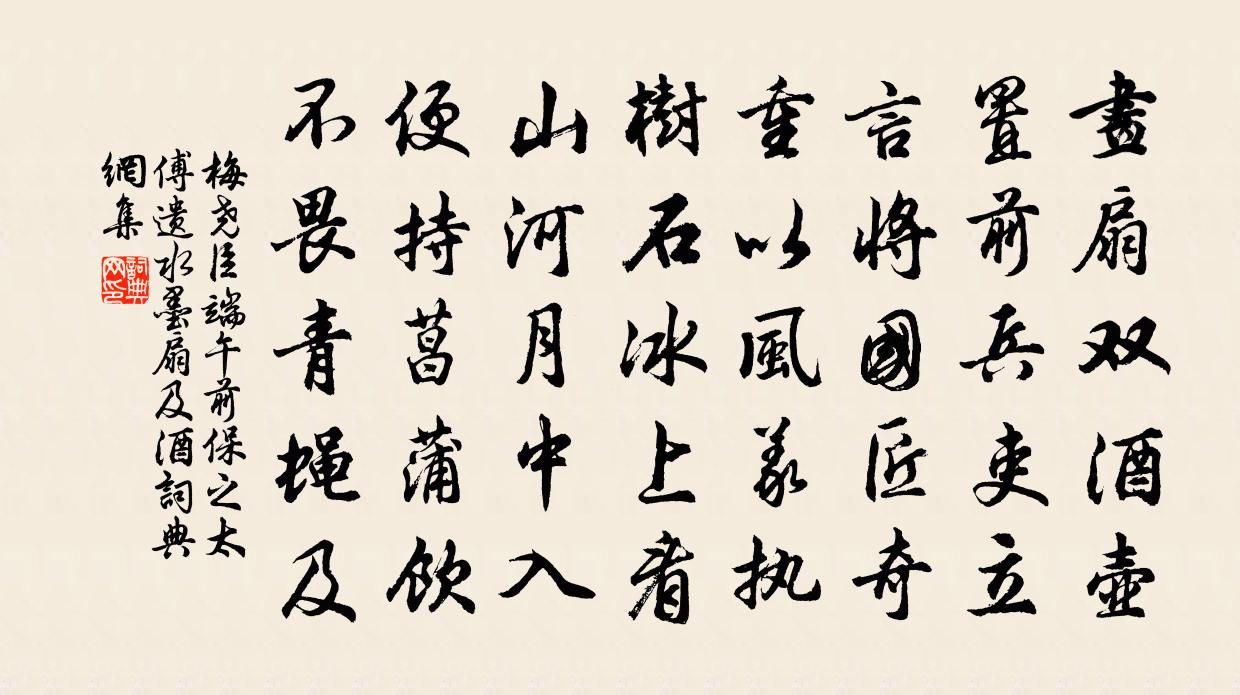 畫扇双酒壺
置前兵吏立
言將國匠奇
重以風義执
樹石冰上看
山河月中入
便持菖蒲飲
不畏青蝇及
梅尧臣端午前保之太
傅遗水墨扇及酒詞典
網集
詞典
网印